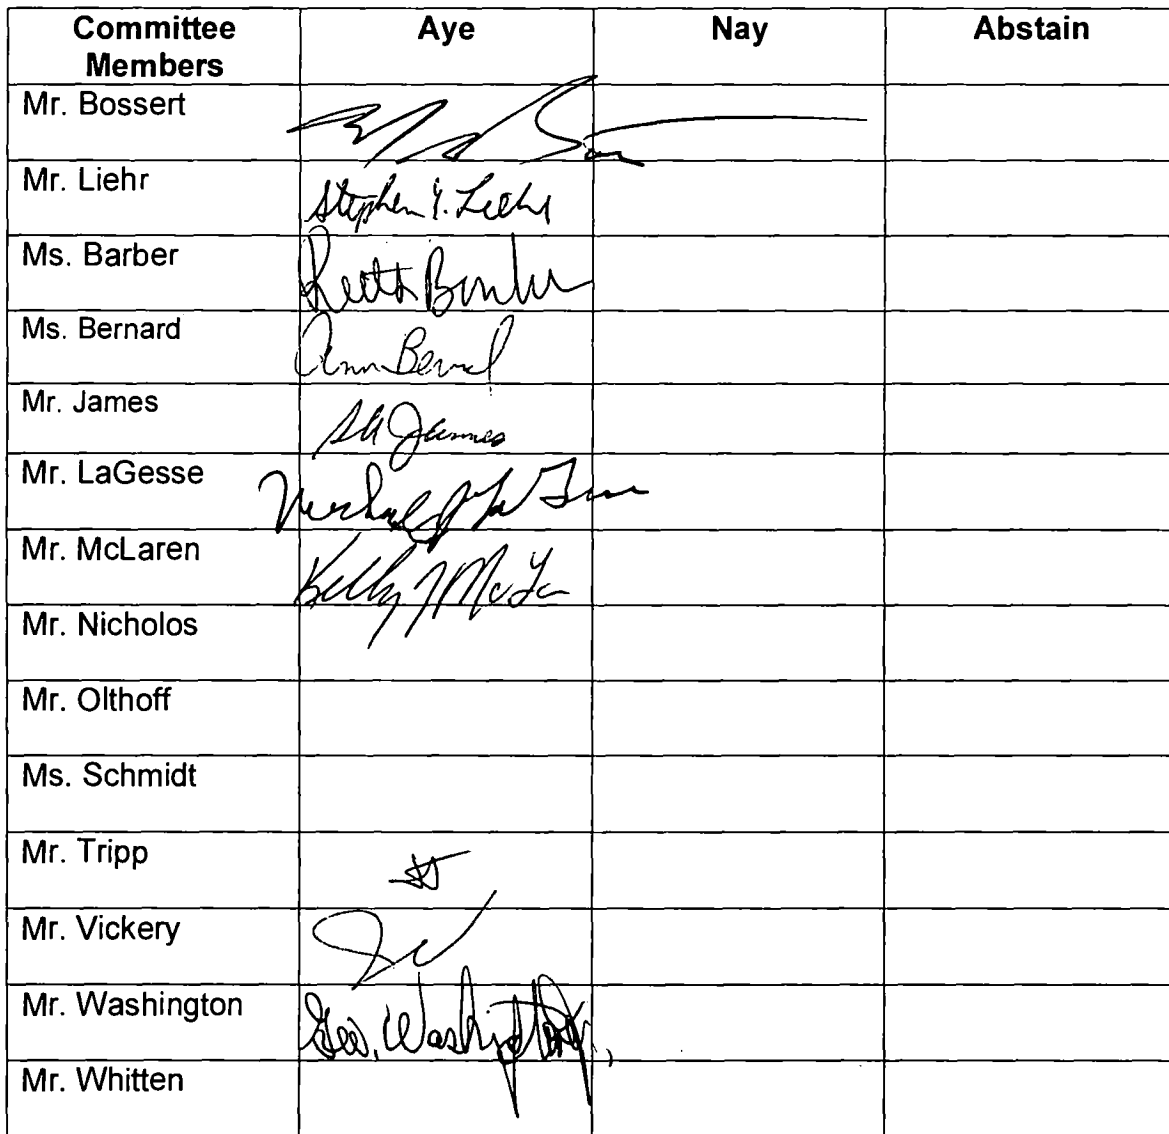 Committee Members Aye Nay Abstain
Mr. Bossert
Mr. Liehr Stephen Y. Liehr
Ms. Barber
Ms. Bernard Ann
Mr. James James
Mr. LaGesse Michael J. La
Mr. McLaren Kelly
Mr. Nicholos
Mr. Olthoff
Ms. Schmidt
Mr. Tripp
Mr. Vickery
Mr. Washington Geo. Washington
Mr. Whitten